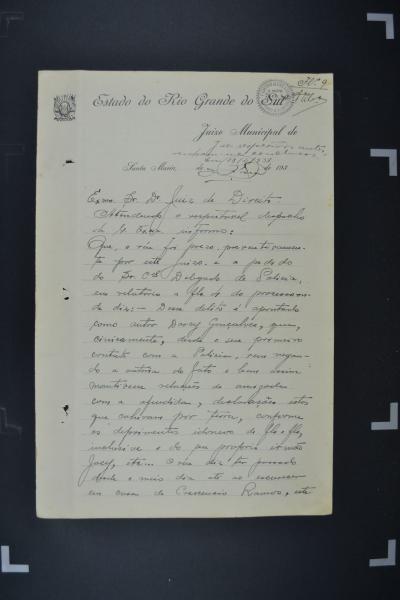 Nº 9
Estado do Rio Grande do Sul
Juizo Municipal de
Santa Maria, de de 193
Exmo. Sr. Dr. Juiz de Direito
Attendendo o respeitavel despacho
de V. Excia. informo:
Que, o réu foi preso preventivamen-
te por este Juizo e a pedido
do Sr. Delegado de Policia,
em relatorio a fls do processo on-
de diz: — Desse delito é apontado
como autor Darcy Gonçalves, quem,
cinicamente, desde o seu primeiro
contato com a Policia, vem negan-
do a autoria do fato e bem assim
mantivesse relações de amizade
com a ofendida, declarações estas
que cahiram por terra, conforme
os depoimentos idoneos de fls e fls,
inclusive o do seu proprio irmão
Jacy, o réu diz ter passado
desde o meio dia até ao escurecer
em casa de Crescencio Ramos, este